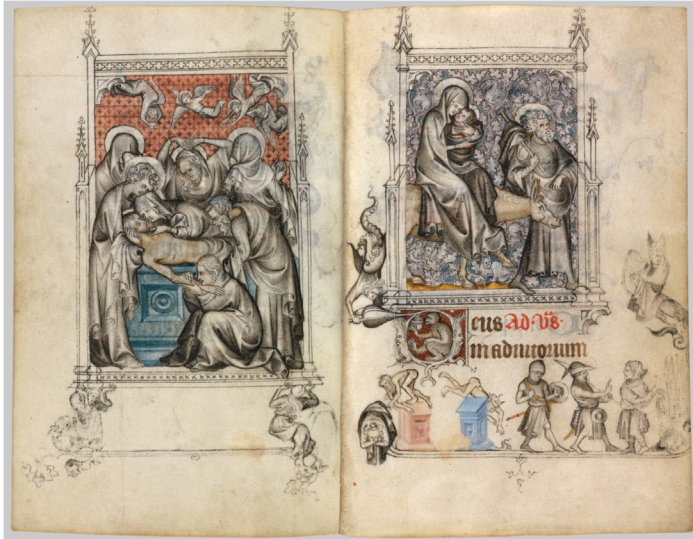 Deus Ad. v̄s.
in adiutorium